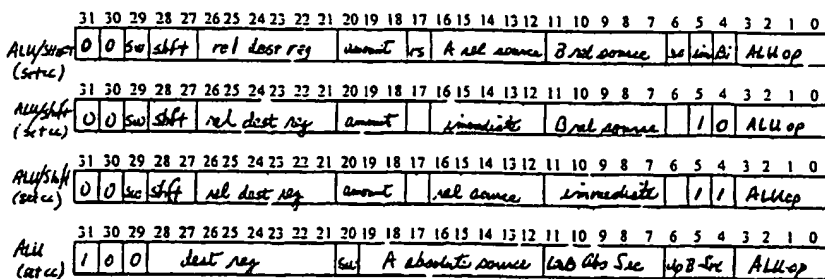 31 30 29 28 27 26 25 24 23 22 21 20 19 18 17 16 15 14 13 12 11 10 9 8 7 6 5 4 3 2 1 0
ALU/Shift 0 0 sw shft rel dest reg amount rs A rel source B rel source im Bi ALU op
(set cc)
31 30 29 28 27 26 25 24 23 22 21 20 19 18 17 16 15 14 13 12 11 10 9 8 7 6 5 4 3 2 1 0
ALU/shift 0 0 sw shft rel dest reg amount immediate B rel source 1 0 ALU op
(set cc)
31 30 29 28 27 26 25 24 23 22 21 20 19 18 17 16 15 14 13 12 11 10 9 8 7 6 5 4 3 2 1 0
ALU/Shift 0 0 shft rel dest reg amount rel source immediate 1 1 ALU op
(set cc)
31 30 29 28 27 26 25 24 23 22 21 20 19 18 17 16 15 14 13 12 11 10 9 8 7 6 5 4 3 2 1 0
ALU 1 0 0 dest reg A absolute source B Abs Src B Src ALU op
(set cc)